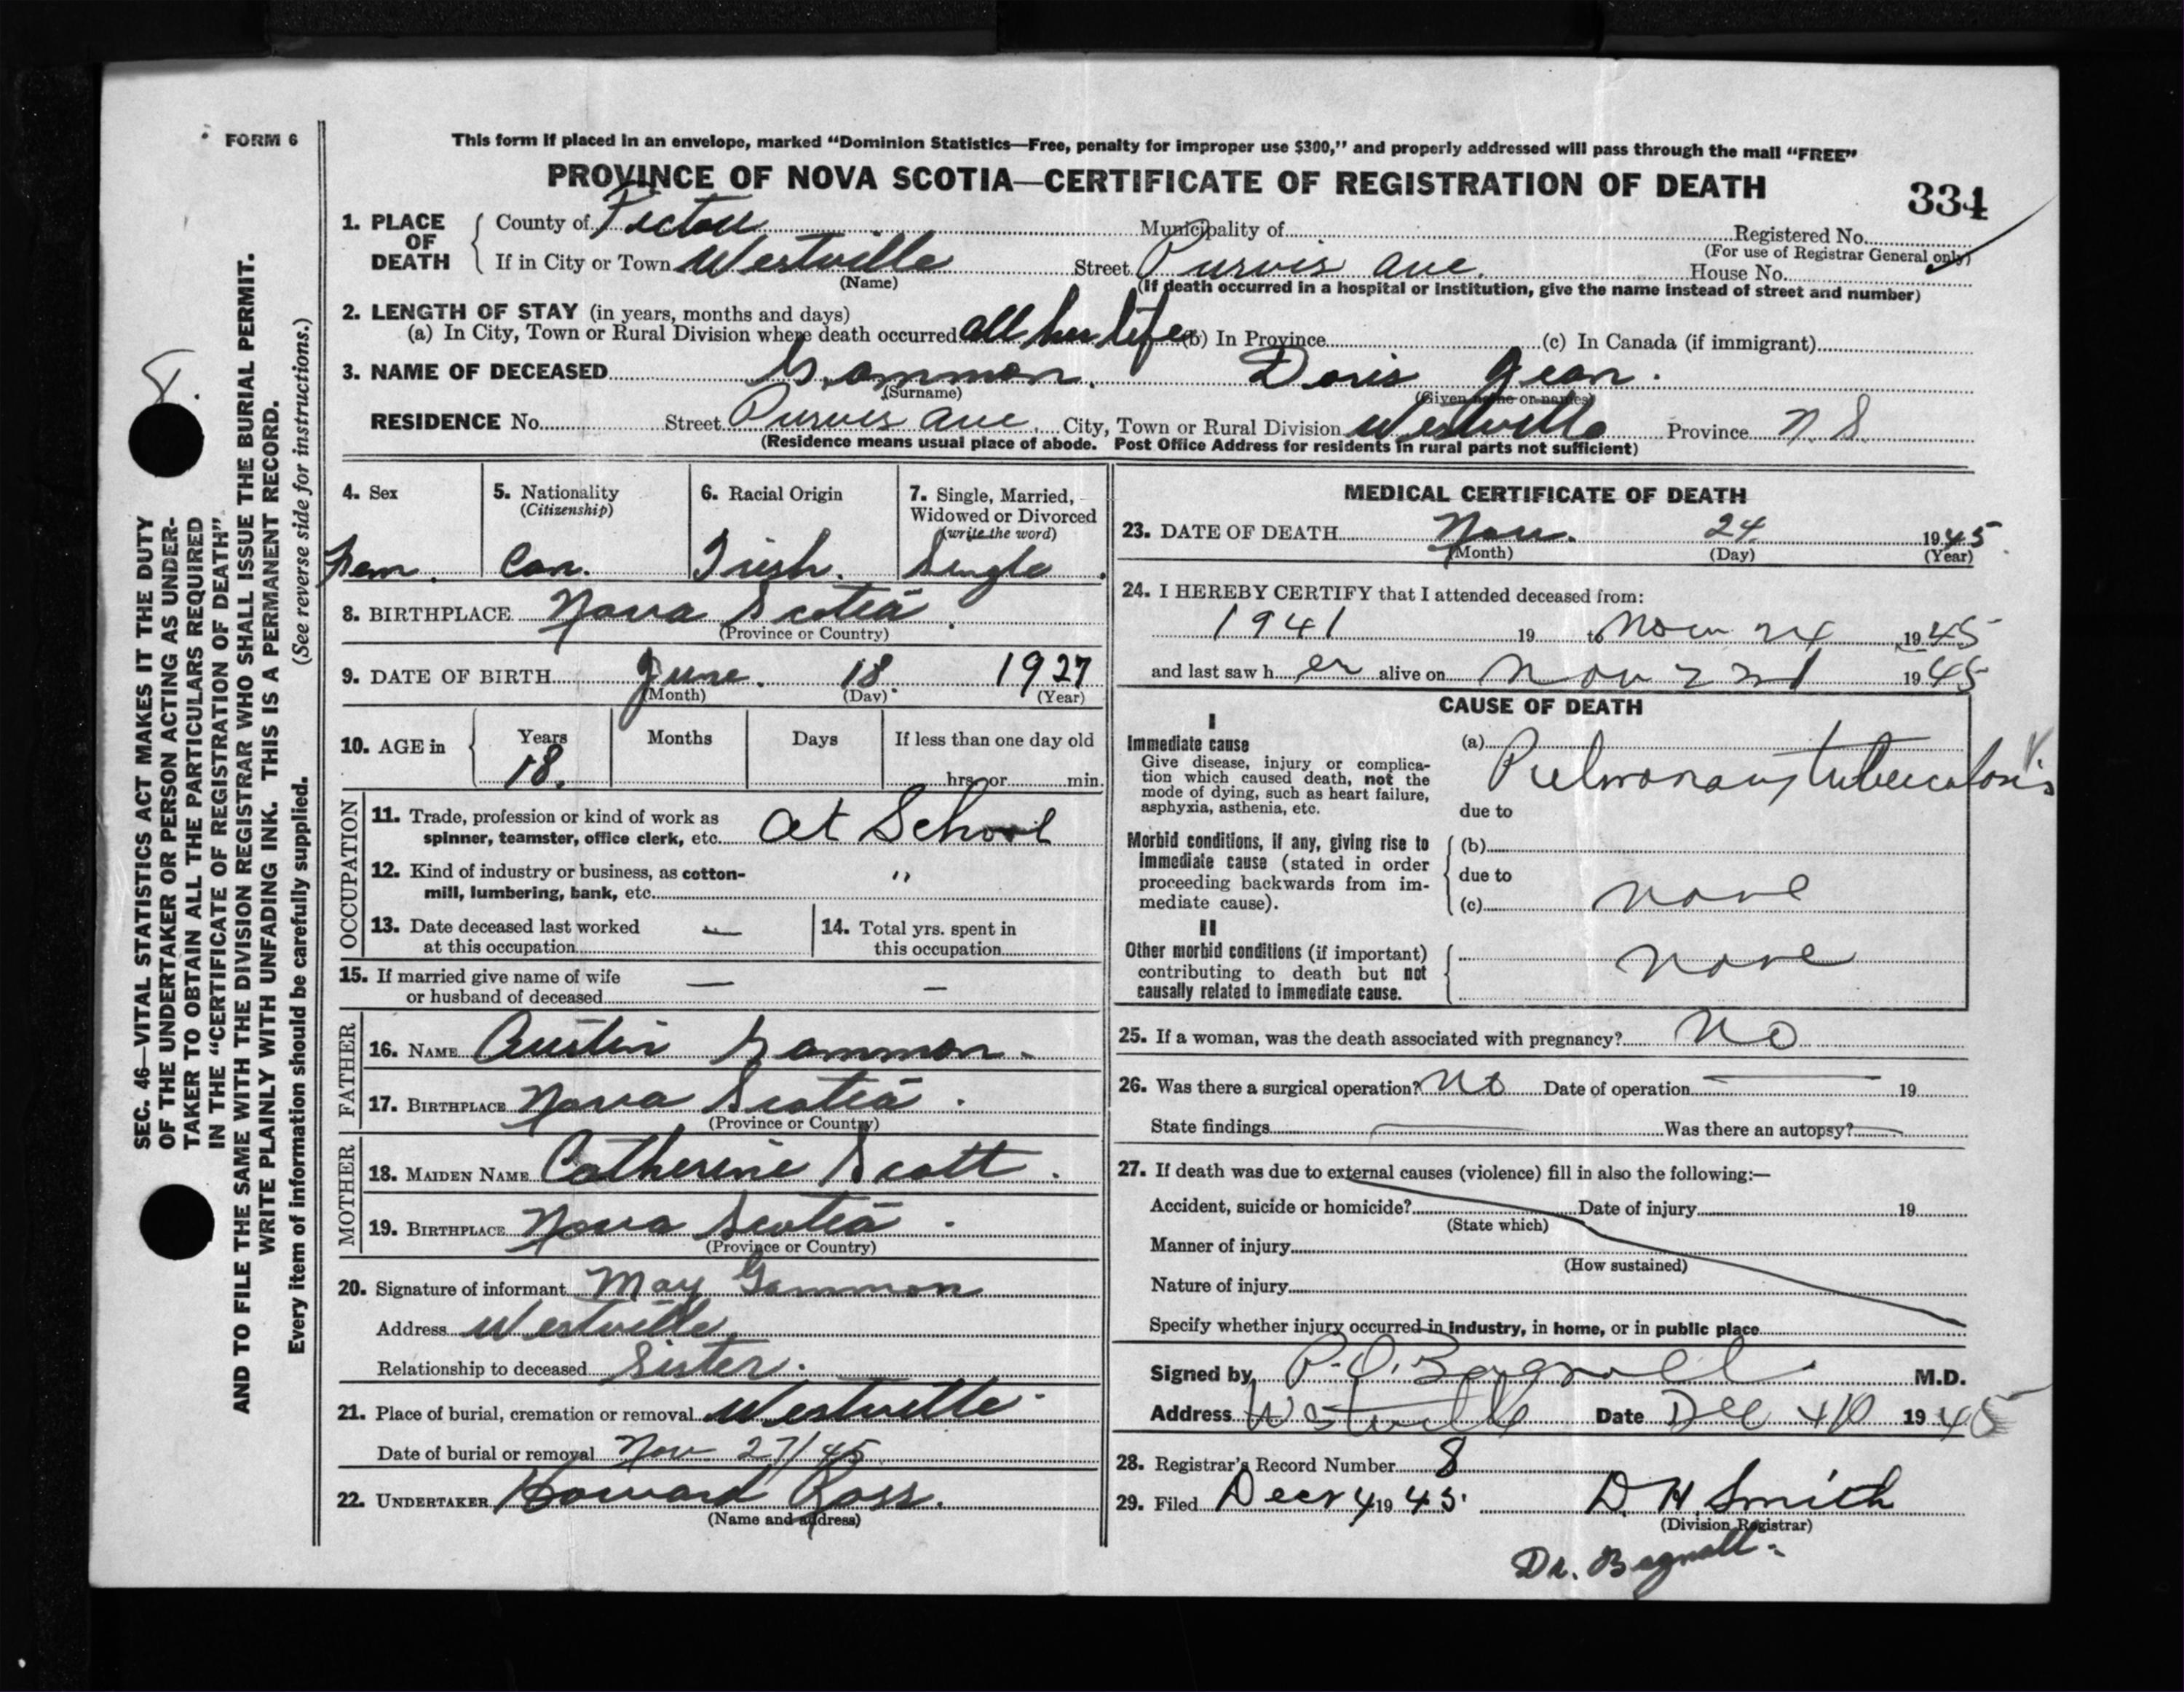 FORM 6
This form if placed in an envelope, marked "Dominion Statistics—Free, penalty for improper use $300," and properly addressed will pass through the mail "FREE"
PROVINCE OF NOVA SCOTIA—CERTIFICATE OF REGISTRATION OF DEATH
334
1. PLACE OF DEATH County of Pictou Municipality of Registered No.
(For use of Registrar General only)
If in City or Town Westville Street Purvis Ave. House No.
(Name) (If death occurred in a hospital or institution, give the name instead of street and number)
2. LENGTH OF STAY (in years, months and days)
(a) In City, Town or Rural Division where death occurred all her life (b) In Province (c) In Canada (if immigrant)
3. NAME OF DECEASED Gammon. Doris Jean.
(Surname) (Given name or names)
RESIDENCE No. Street Purvis Ave. City, Town or Rural Division Westville Province N.S.
(Residence means usual place of abode. Post Office Address for residents in rural parts not sufficient)
4. Sex Fem.
5. Nationality (Citizenship) Can.
6. Racial Origin Irish.
7. Single, Married, Widowed or Divorced (write the word) Single.
8. BIRTHPLACE Nova Scotia.
(Province or Country)
9. DATE OF BIRTH June. 18. 1927
(Month) (Day) (Year)
10. AGE in Years Months Days If less than one day old
18. hrs. or min.
OCCUPATION
11. Trade, profession or kind of work as
spinner, teamster, office clerk, etc. At School
12. Kind of industry or business, as cotton-
mill, lumbering, bank, etc. "
13. Date deceased last worked
at this occupation —
14. Total yrs. spent in
this occupation
15. If married give name of wife
or husband of deceased — —
FATHER
16. NAME Austin Gammon.
17. BIRTHPLACE Nova Scotia.
(Province or Country)
MOTHER
18. MAIDEN NAME Catherine Scott.
19. BIRTHPLACE Nova Scotia.
(Province or Country)
20. Signature of informant May Gammon
Address Westville
Relationship to deceased Sister.
21. Place of burial, cremation or removal Westville
Date of burial or removal Nov 27/45
22. UNDERTAKER Howard Ross.
(Name and address)
MEDICAL CERTIFICATE OF DEATH
23. DATE OF DEATH Nov. 24. 1945
(Month) (Day) (Year)
24. I HEREBY CERTIFY that I attended deceased from:
1941 19 to Nov 24 1945
and last saw her alive on Nov 22nd 1945
CAUSE OF DEATH
I
Immediate cause
Give disease, injury or complica-
tion which caused death, not the
mode of dying, such as heart failure,
asphyxia, asthenia, etc.
(a) Pulmonary tuberculosis
due to
Morbid conditions, if any, giving rise to
immediate cause (stated in order
proceeding backwards from im-
mediate cause).
(b)
due to
(c) none
II
Other morbid conditions (if important)
contributing to death but not
causally related to immediate cause.
none
25. If a woman, was the death associated with pregnancy? No
26. Was there a surgical operation? No Date of operation 19
State findings Was there an autopsy?
27. If death was due to external causes (violence) fill in also the following:—
Accident, suicide or homicide? Date of injury 19
(State which)
Manner of injury
(How sustained)
Nature of injury
Specify whether injury occurred in industry, in home, or in public place
Signed by P.O. Bagnall M.D.
Address Westville Date Dec 1945
28. Registrar's Record Number 8
29. Filed Decr 4 1945. D H Smith
(Division Registrar)
Dr. Bagnall.
SEC. 46—VITAL STATISTICS ACT MAKES IT THE DUTY
OF THE UNDERTAKER OR PERSON ACTING AS UNDER-
TAKER TO OBTAIN ALL THE PARTICULARS REQUIRED
IN THE "CERTIFICATE OF REGISTRATION OF DEATH"
AND TO FILE THE SAME WITH THE DIVISION REGISTRAR WHO SHALL ISSUE THE BURIAL PERMIT.
WRITE PLAINLY WITH UNFADING INK. THIS IS A PERMANENT RECORD.
Every item of information should be carefully supplied. (See reverse side for instructions.)
8.